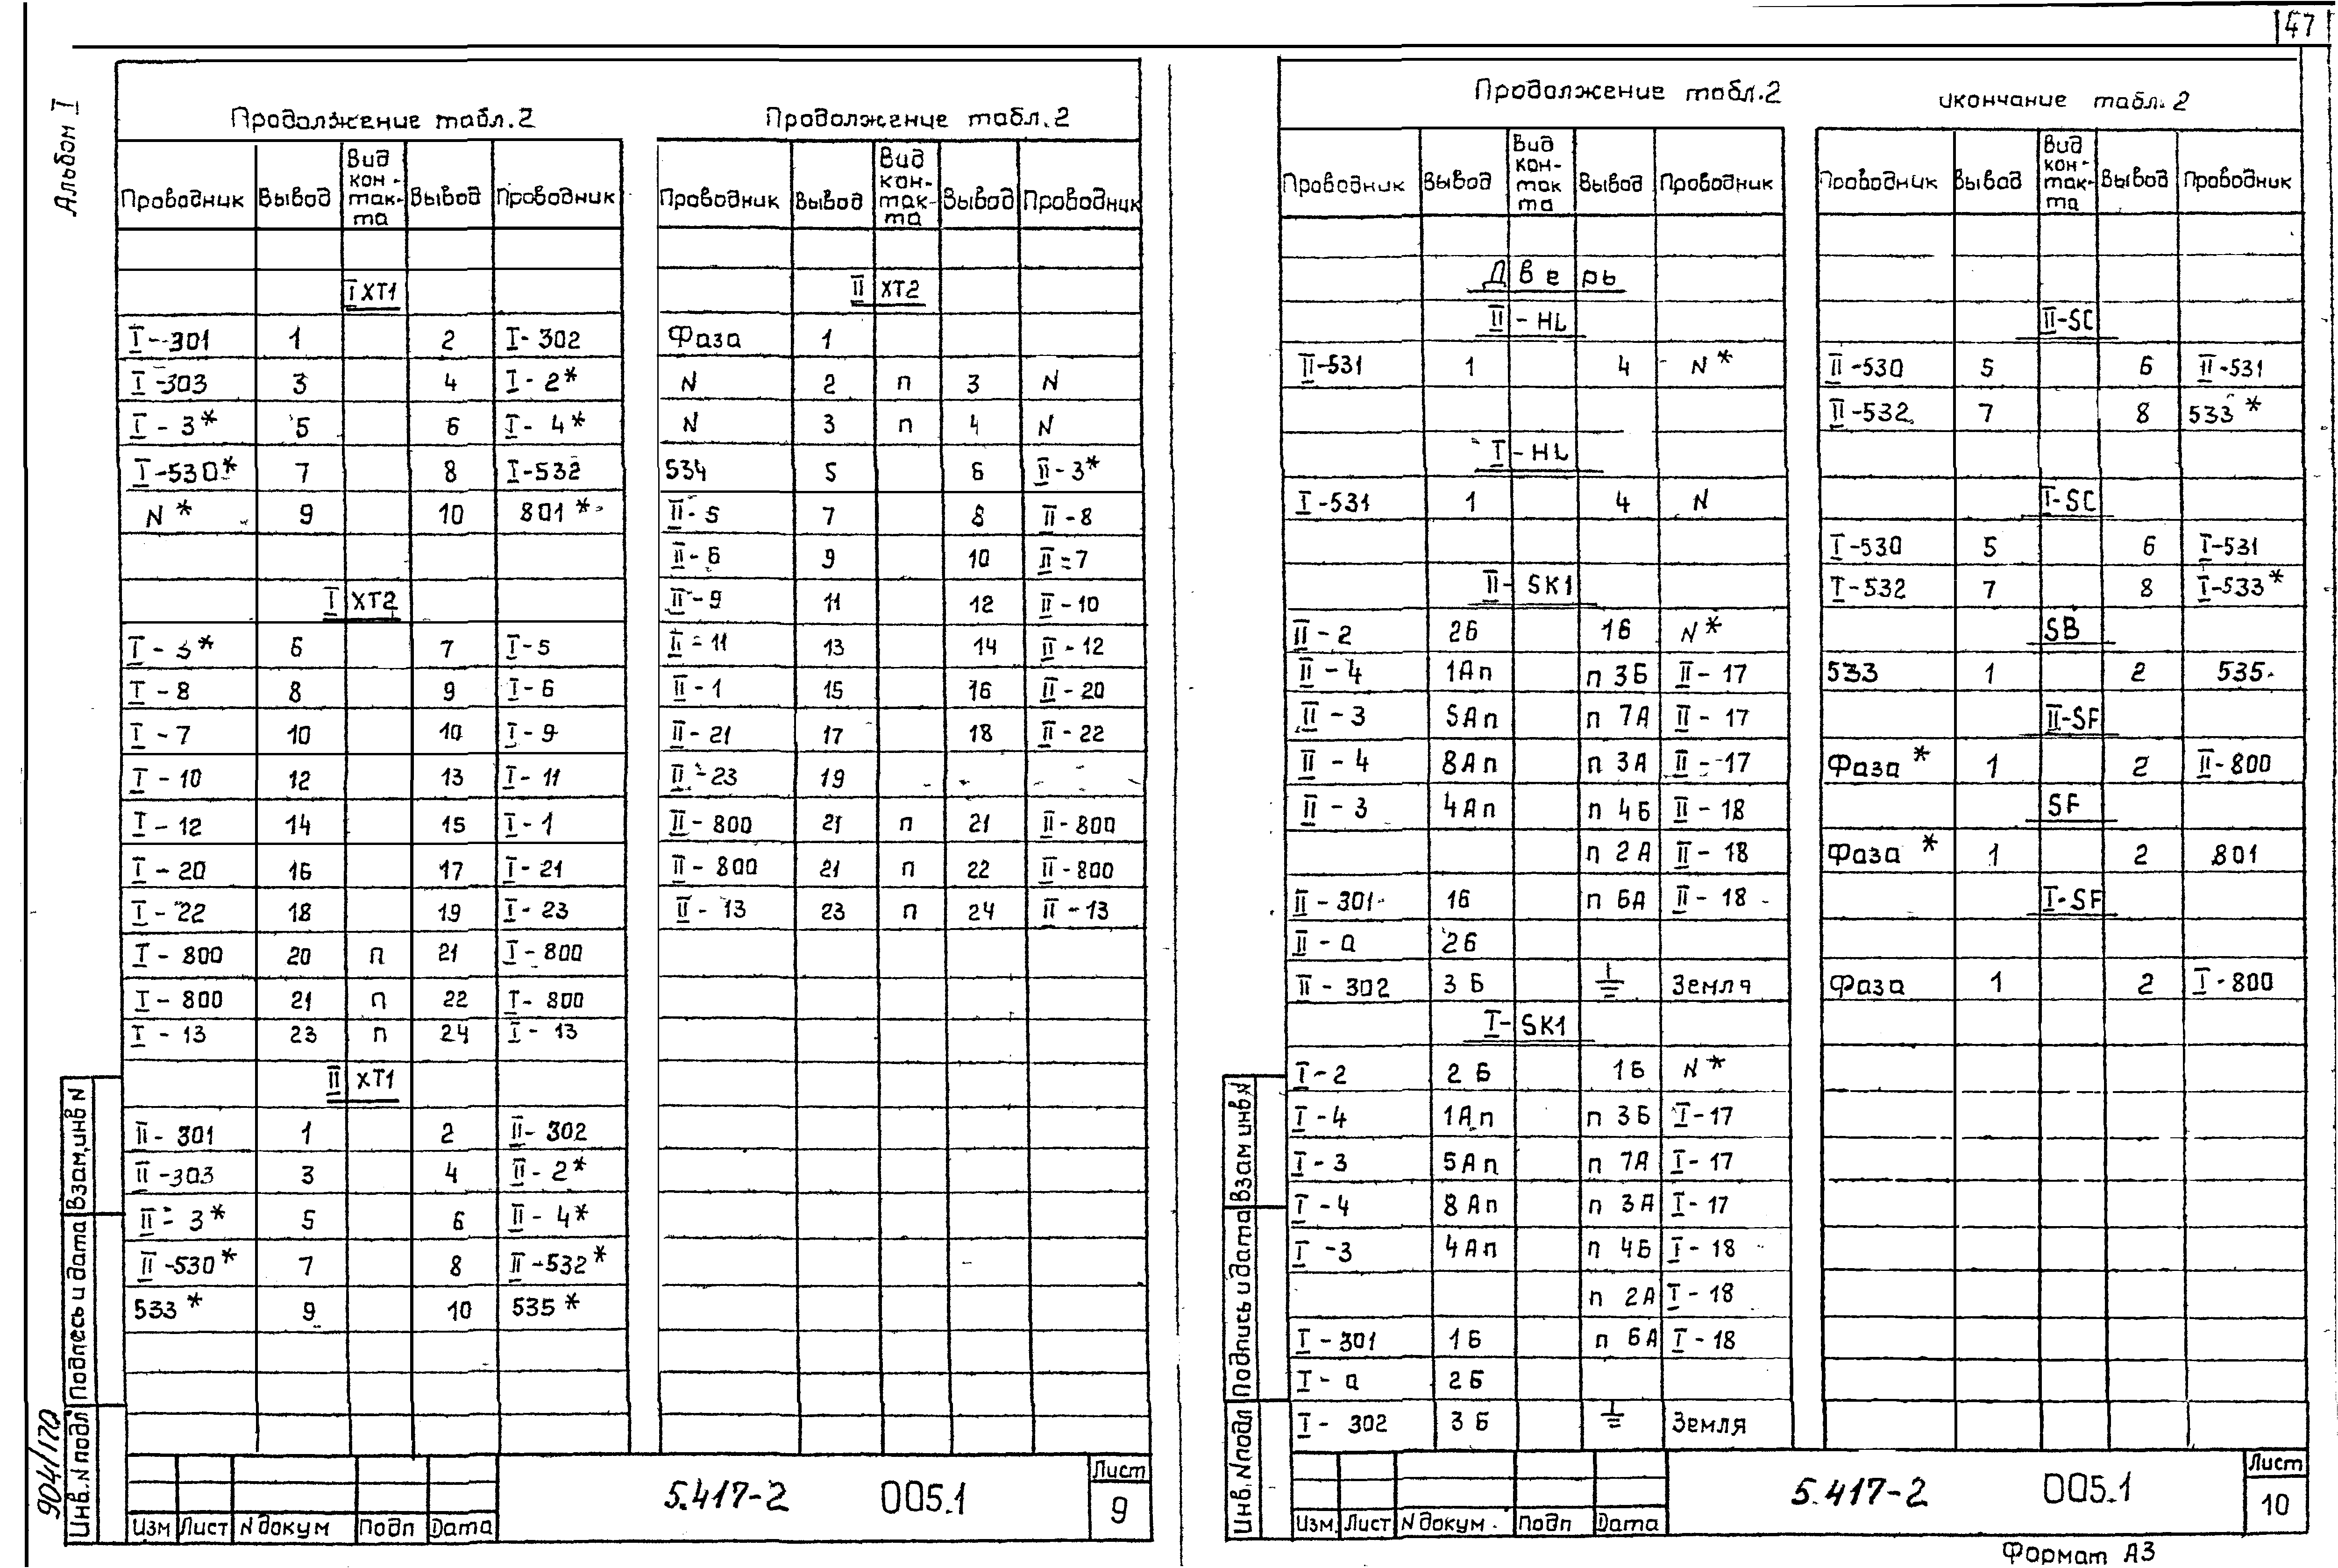 47
Альбом I
Продолжение табл.2
Проводник Вывод Вид кон-так-та Вывод Проводник
I ХТ1
I-301 1 2 I-302
I-303 3 4 I-2*
I-3* 5 6 I-4*
I-530* 7 8 I-532
N* 9 10 801*
I ХТ2
I-3* 6 7 I-5
I-8 8 9 I-6
I-7 10 10 I-9
I-10 12 13 I-11
I-12 14 15 I-1
I-20 16 17 I-21
I-22 18 19 I-23
I-800 20 п 21 I-800
I-800 21 п 22 I-800
I-13 23 п 24 I-13
II ХТ1
II-301 1 2 II-302
II-303 3 4 II-2*
II-3* 5 6 II-4*
II-530* 7 8 II-532*
533* 9 10 535*
Продолжение табл.2
Проводник Вывод Вид кон-так-та Вывод Проводник
II ХТ2
Фаза 1
N 2 п 3 N
N 3 п 4 N
534 5 6 II-3*
II-5 7 8 II-8
II-6 9 10 II-7
II-9 11 12 II-10
II-11 13 14 II-12
II-1 15 16 II-20
II-21 17 18 II-22
II-23 19
II-800 21 п 21 II-800
II-800 21 п 22 II-800
II-13 23 п 24 II-13
Взам.инв N
Подпись и дата
Инв.N подл
904/170
Изм Лист N докум Подп Дата
5.417-2 005.1
Лист
9
Продолжение табл.2
Проводник Вывод Вид кон-так та Вывод Проводник
Дверь
II-HL
II-531 1 4 N*
I-HL
I-531 1 4 N
II-SK1
II-2 2Б 1Б N*
II-4 1Ап п 3Б II-17
II-3 5Ап п 7А II-17
II-4 8Ап п 3А II-17
II-3 4Ап п 4Б II-18
п 2А II-18
II-301 1Б п 6А II-18
II-а 2Б
II-302 3Б ⏚ Земля
I-SK1
I-2 2Б 1Б N*
I-4 1Ап п 3Б I-17
I-3 5Ап п 7А I-17
I-4 8Ап п 3А I-17
I-3 4Ап п 4Б I-18
п 2А I-18
I-301 1Б п 6А I-18
I-а 2Б
I-302 3Б ⏚ Земля
икончание табл.2
Проводник Вывод Вид кон-так-та Вывод Проводник
II-SC
II-530 5 6 II-531
II-532 7 8 533*
I-SC
I-530 5 6 I-531
I-532 7 8 I-533*
SB
533 1 2 535
II-SF
Фаза* 1 2 II-800
SF
Фаза* 1 2 801
I-SF
Фаза 1 2 I-800
Взам инв N
Подпись и дата
Инв.N подл
Изм. Лист N докум. Подп Дата
5.417-2 005.1
Лист
10
Формат А3